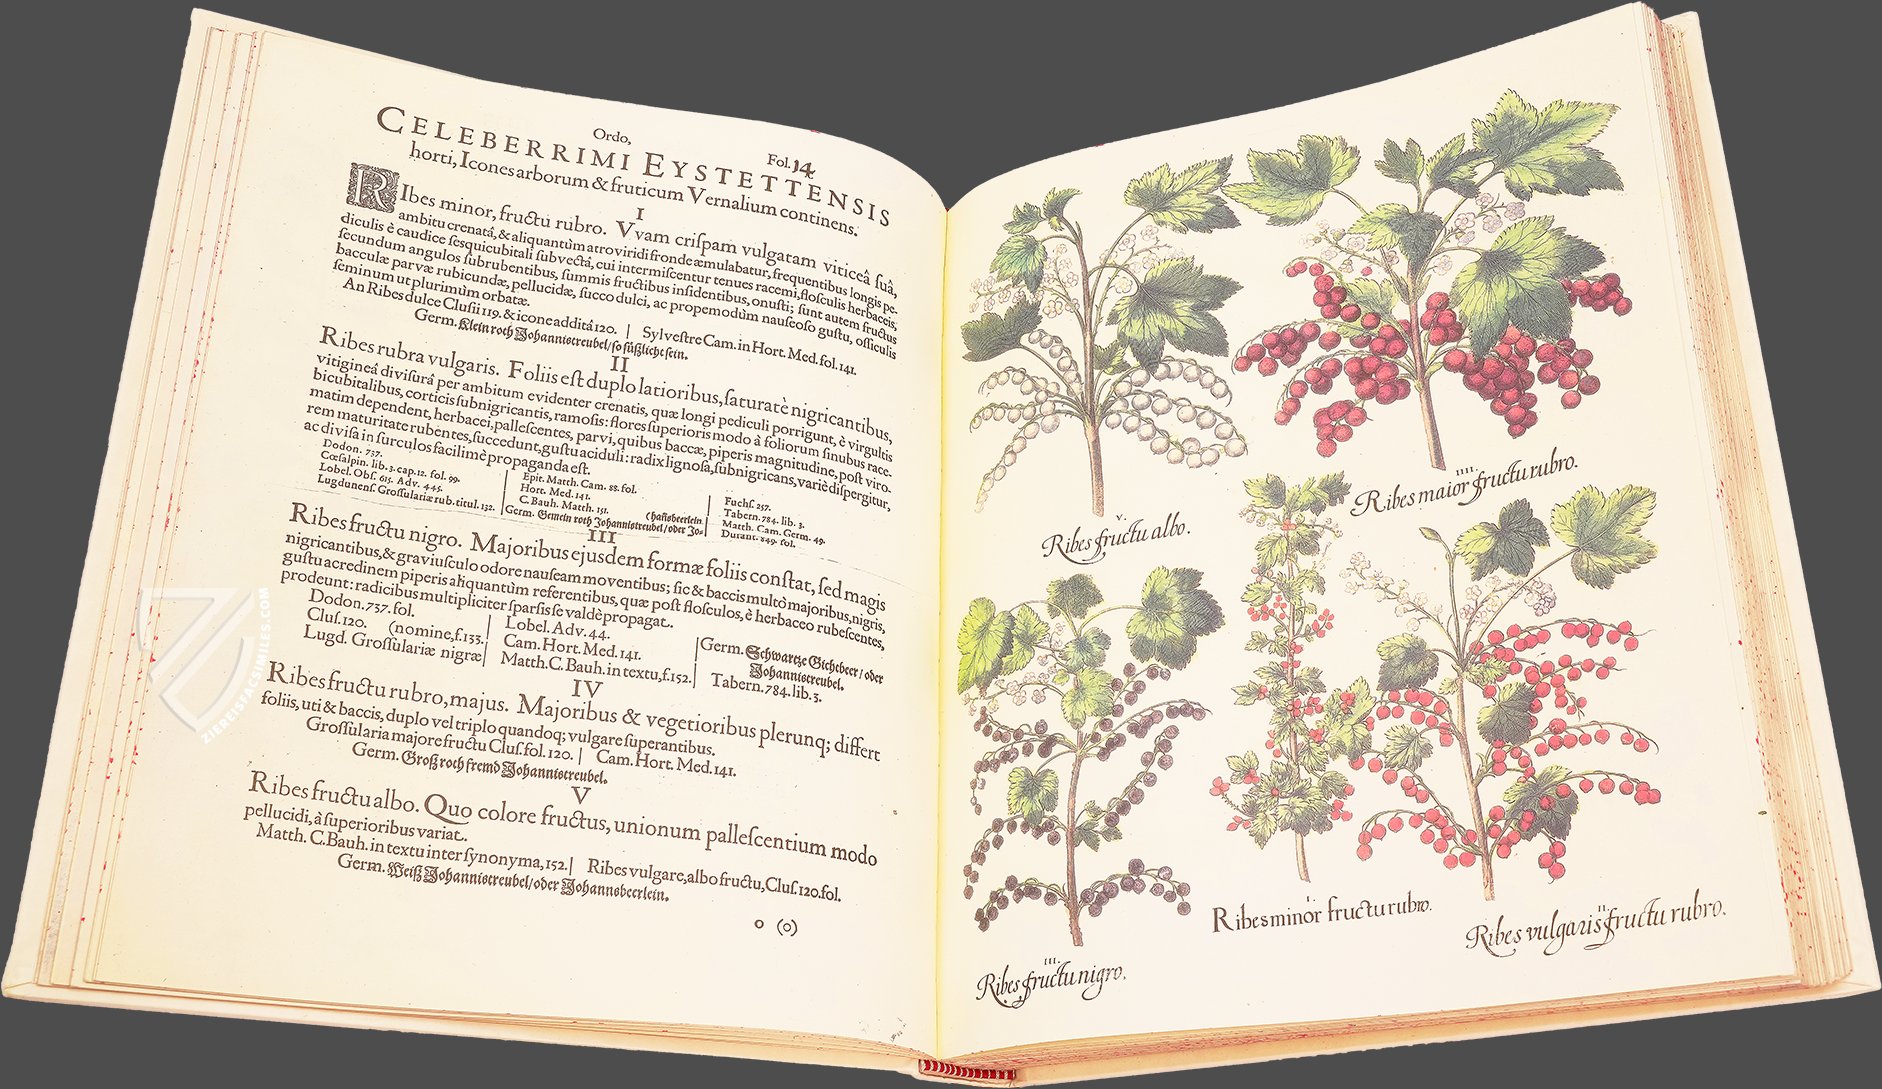 Ordo,
Fol. 14
CELEBERRIMI EYSTETTENSIS
horti, Icones arborum & fruticum Vernalium continens.
I
RIbes minor, fructu rubro. Vvam crispam vulgatam viticeâ suâ,
ambitu crenatâ, & aliquantùm atroviridi fronde æmulabatur, frequentibus longis pe-
diculis è caudice sesquicubitali subvectâ, cui intermiscentur tenues racemi, flosculis herbaceis,
secundum angulos subrubentibus, summis fructibus insidentibus, onusti; sunt autem fructus
bacculæ parvæ rubicundæ, pellucidæ, succo dulci, ac propemodùm nauseoso gustu, officulis
seminum ut plurimùm orbatæ.
An Ribes dulce Clusii 119. & icone additâ 120. | Sylvestre Cam. in Hort. Med. fol. 141.
Germ. Klein roth Johannstreubel/ so süßlicht sein.
II
Ribes rubra vulgaris. Foliis est duplo latioribus, saturatè nigricantibus,
vitigineâ divisurâ per ambitum evidenter crenatis, quæ longi pediculi porrigunt, è virgultis
bicubitalibus, corticis subnigricantis, ramosis: flores superioris modo à foliorum sinubus race-
matim dependent, herbacei, pallescentes, parvi, quibus baccæ, piperis magnitudine, post viro-
rem maturitate rubentes, succedunt, gustu aciduli: radix lignosa, subnigricans, variè dispergitur,
ac divisa in surculos facilimè propaganda est.
Dodon. 737.
Cœsalpin. lib. 3. cap. 12. fol. 99.
Lobel. Obs. 615. Adv. 445.
Lugdunens. Grossulariæ rub. titul. 132.
Epit. Matth. Cam. 88. fol.
Hort. Med. 141.
C. Bauh. Matth. 151. (hañsbeerlein.
Germ. Gemein roth Johannistreubel/ oder Jo-
Fuchs. 257.
Tabern. 784. lib. 3.
Matth. Cam. Germ. 49.
Durant. 849. fol.
III
Ribes fructu nigro. Majoribus ejusdem formæ foliis constat, sed magis
nigricantibus, & graviusculo odore nauseam moventibus; sic & baccis multò majoribus, nigris,
gustu acredinem piperis aliquantùm referentibus, quæ post flosculos, è herbaceo rubescentes,
prodeunt: radicibus multipliciter sparsis se valdè propagat.
Dodon. 737. fol.
Clus. 120. (nomine, f. 133.
Lugd. Grossulariæ nigræ
Lobel. Adv. 44.
Cam. Hort. Med. 141.
Matth. C. Bauh. in textu, f. 152.
Germ. Schwartze Gichtbeer/ oder
Johannistreubel.
Tabern. 784. lib. 3.
IV
Ribes fructu rubro, majus. Majoribus & vegetioribus plerunq; differt
foliis, uti & baccis, duplo vel triplo quandoq; vulgare superantibus.
Grossularia majore fructu Clus. fol. 120. | Cam. Hort. Med. 141.
Germ. Groß roth fremd Johannistreubel.
V
Ribes fructu albo. Quo colore fructus, unionum pallescentium modo
pellucidi, à superioribus variat.
Matth. C. Bauh. in textu inter synonyma, 152. | Ribes vulgare, albo fructu, Clus. 120. fol.
Germ. Weiß Johannistreubel/ oder Johannsbeerlein.
o (o)
V.
Ribes fructu albo.
IIII.
Ribes maior fructu rubro.
III.
Ribes fructu nigro.
I
Ribes minor fructu rubro.
II
Ribes vulgaris fructu rubro.
ZIEREISFACSIMILES.COM